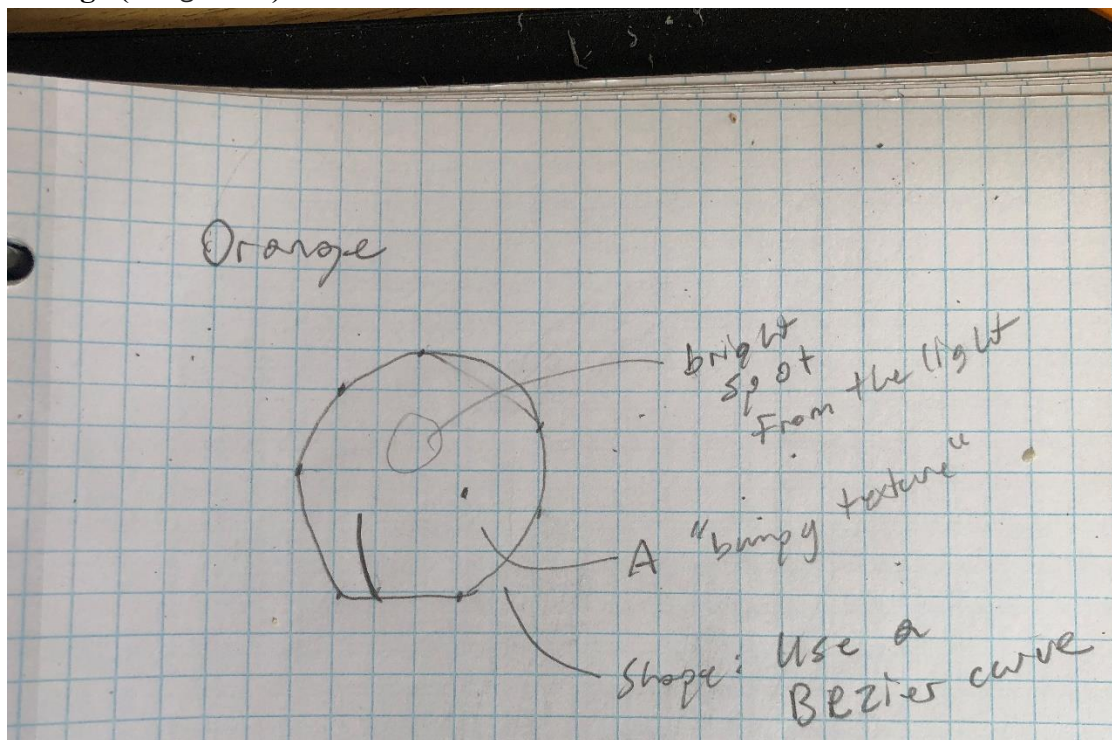 Orange
bright
spot
From the light
A "bumpy texture"
Shape: Use a
BEzier curve